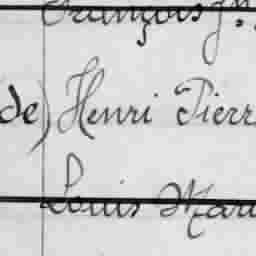 François Jn.
de) Henri Pierr
Louis Mari